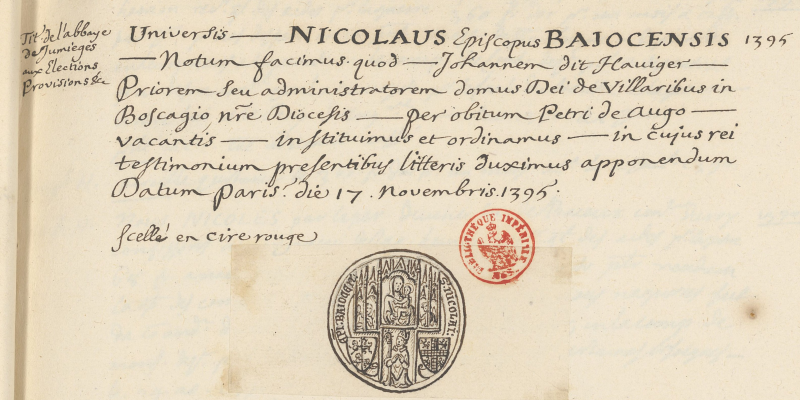 Tit. de l'abbaye
de Jumieges
aux Elections
Provisions &c
Universis — NICOLAUS Episcopus BAIOCENSIS 1395
— Notum facimus quod — Johannem dit Haviger —
Priorem seu administratorem domus Dei de Villaribus in
Boscagio nr̃e Diocesis — per obitum Petri de Augo —
vacantis — instituimus et ordinamus — in cujus rei
testimonium presentibus litteris duximus apponendum
Datum Paris. die 17. Novembris. 1395.
scellé en cire rouge
BIBLIOTHÈQUE IMPÉRIALE
MSS.
S. NICOLAI
EPI. BAIOCEN